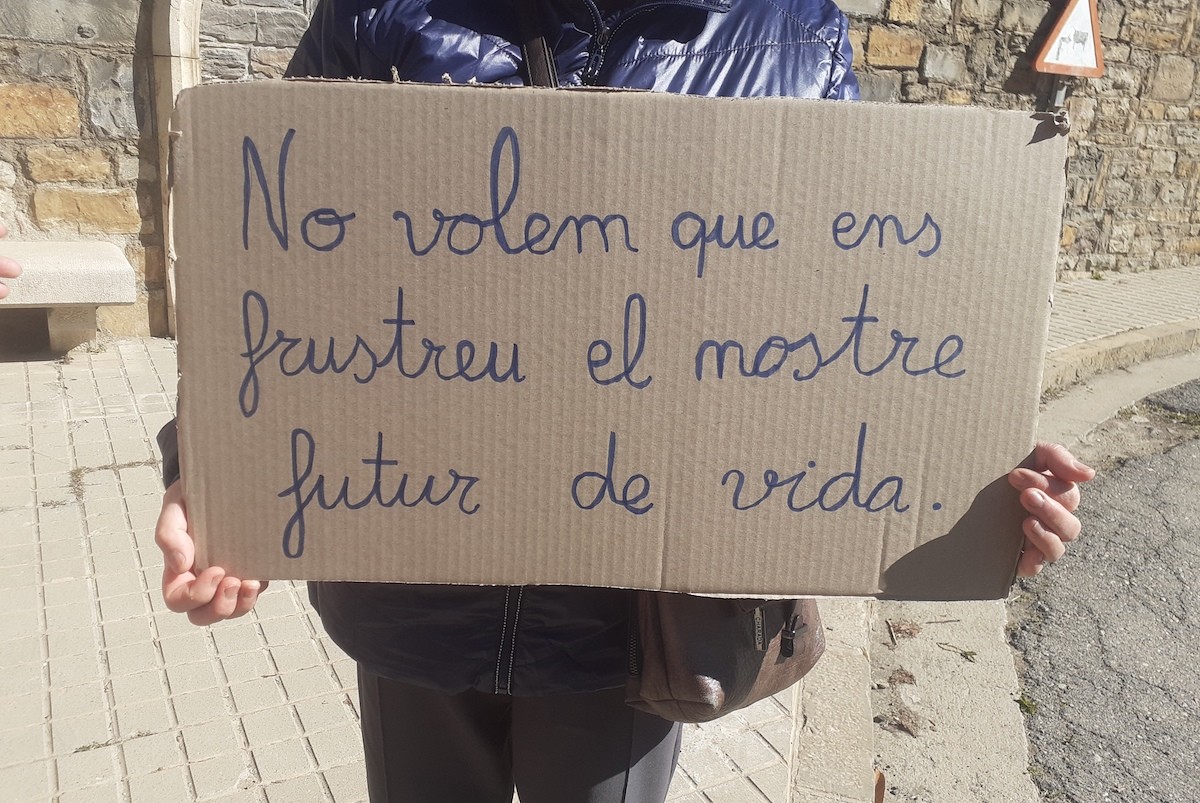 No volem que ens
frustreu el nostre
futur de vida.